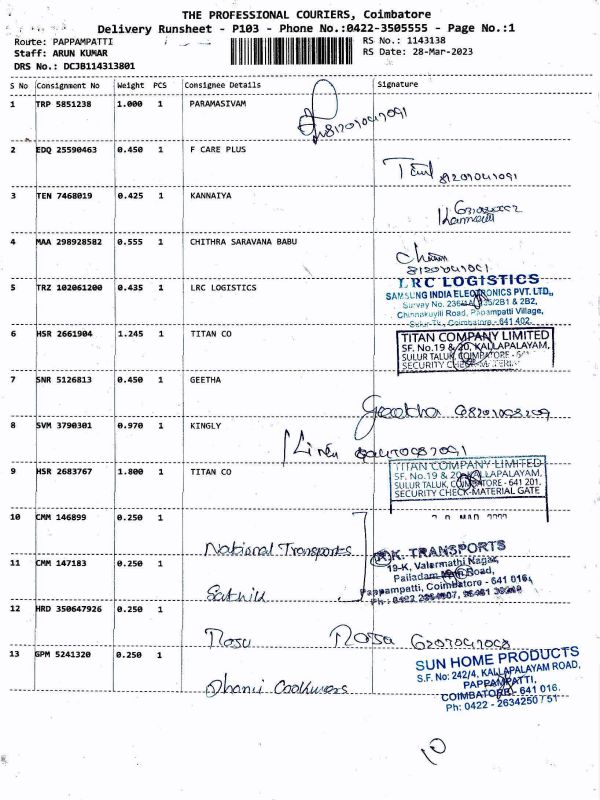 THE PROFESSIONAL COURIERS, Coimbatore
Delivery Runsheet - P103 - Phone No.:0422-3505555 - Page No.:1
Route: PAPPAMPATTI RS No.: 1143138
Staff: ARUN KUMAR RS Date: 28-Mar-2023
DRS No.: DCJB114313801
S No Consignment No Weight PCS Consignee Details Signature
1 TRP 5851238 1.000 1 PARAMASIVAM
2 EDQ 25590463 0.450 1 F CARE PLUS
3 TEN 7468019 0.425 1 KANNAIYA
4 MAA 298928582 0.555 1 CHITHRA SARAVANA BABU
5 TRZ 102061200 0.435 1 LRC LOGISTICS
LRC LOGISTICS
SAMSUNG INDIA ELECTRONICS PVT. LTD.,
Chinnakuyili Road, Papampatti Village,
Sulur-Tk., Coimbatore - 641 402.
6 HSR 2661904 1.245 1 TITAN CO
TITAN COMPANY LIMITED
SF. No.19 & 20, KALLAPALAYAM,
SULUR TALUK, COIMBATORE - 641
SECURITY CHECK-MATERIAL
7 SNR 5126813 0.450 1 GEETHA
Geetha
8 SVM 3790301 0.970 1 KINGLY
9 HSR 2683767 1.800 1 TITAN CO
TITAN COMPANY LIMITED
SF. No.19 & 20, KALLAPALAYAM,
SULUR TALUK, COIMBATORE - 641 201.
SECURITY CHECK-MATERIAL GATE
10 CMM 146899 0.250 1
National Transports
R.K. TRANSPORTS
19-K, Valarmathi Nagar,
Palladam Main Road,
Pappampatti, Coimbatore - 641 016,
11 CMM 147183 0.250 1
Sathik
12 HRD 350647926 0.250 1
Rosa Rossa
13 GPM 5241320 0.250 1
Dhanu Cookwares
SUN HOME PRODUCTS
S.F. No: 242/4, KALLAPALAYAM ROAD,
PAPPAMPATTI,
COIMBATORE - 641 016.
Ph: 0422 - 2634250 / 51
10